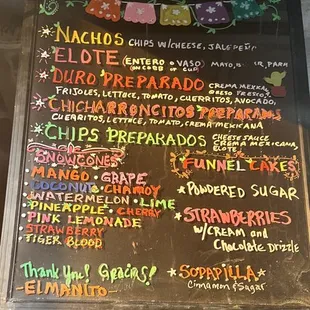 NACHOS CHIPS W/CHEESE, JALEPEÑ
ELOTE (ENTERO • VASO) MAYO,
ON COBB OR CUP PARM
DURO PREPARADO CREMA MEXICANA
QUESO FRESCO,
FRIJOLES, LETTUCE, TOMATO, CUERRITOS, AVOCADO,
CHICHARRONCITOS PREPARADOS
CUERRITOS, LETTUCE, TOMATO, CREMA MEXICANA
CHIPS PREPARADOS CHEESE SAUCE
CREMA MEXICANA,
ELOTE
SNOWCONES
MANGO • GRAPE
COCONUT • CHAMOY
WATERMELON • LIME
PINEAPPLE • CHERRY
PINK LEMONADE
STRAWBERRY
TIGER BLOOD
Thank You! Gracias!
~ELMANITO~
FUNNEL CAKES
POWDERED SUGAR
STRAWBERRIES
W/CREAM and
Chocolate Drizzle
SOPAPILLA
Cinnamon & Sugar